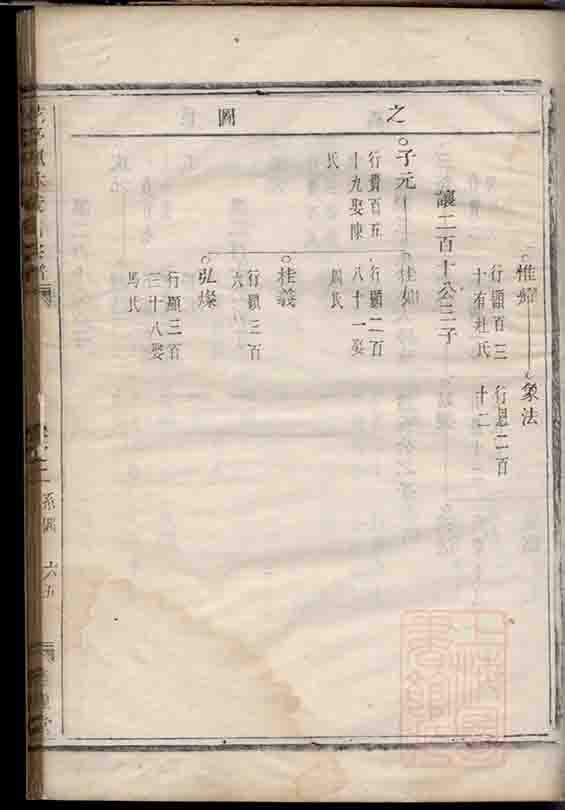 之　圖
惟
行顯百三
十有杜氏
象法
行思二百
十二
讓二百十公三子
子元
行貴百五
十九娶陳
氏
桂如
行顯二百
八十一娶
周氏
桂義
行顯三百
六
弘燦
行顯三百
三十八娶
馬氏
系圖
六五